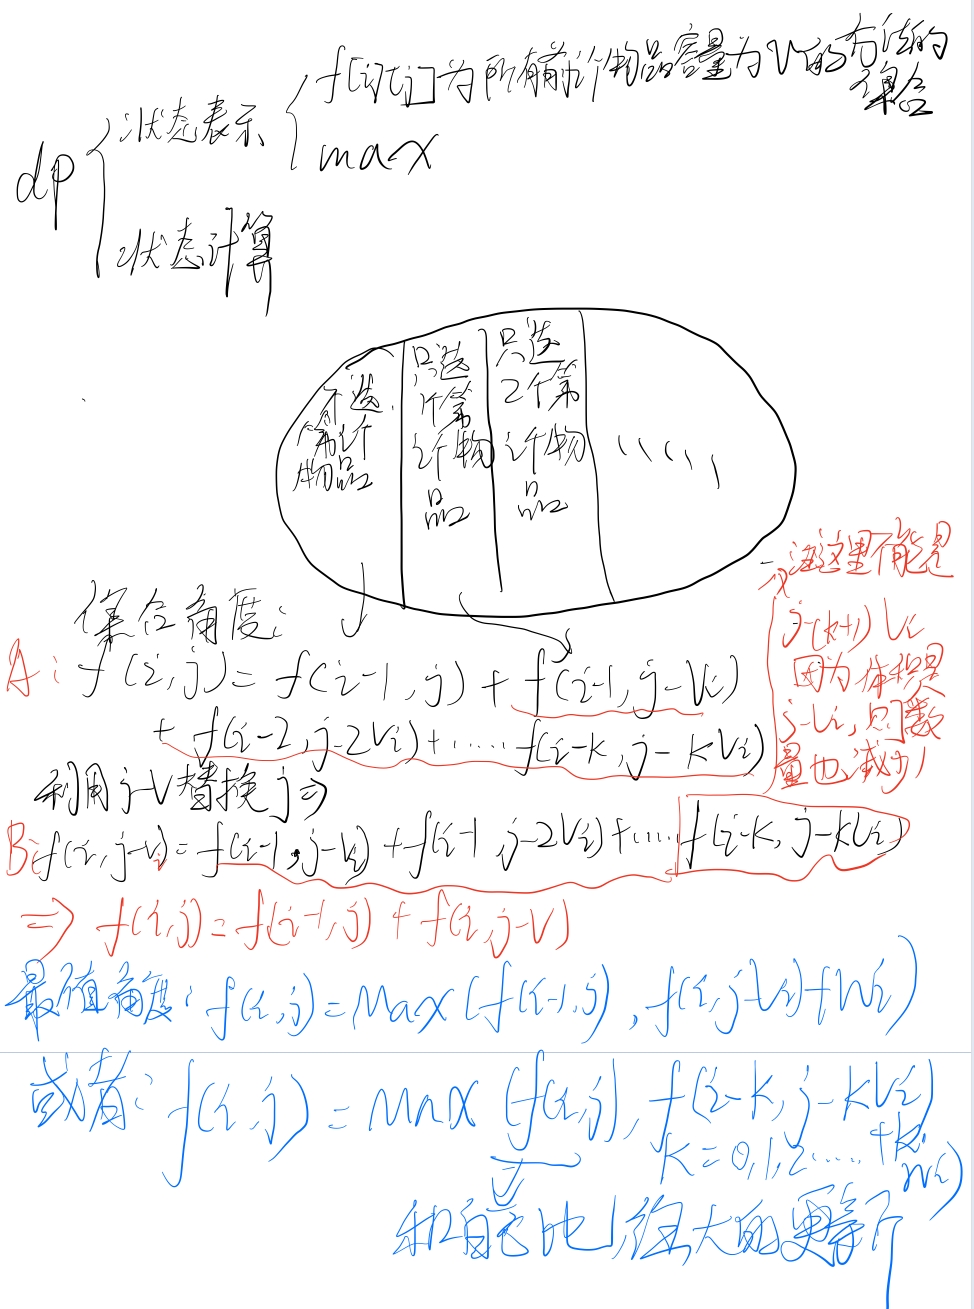 dp
状态表示
f[i][j]为所有前i个物品容量为V的方法的
集合
max
状态计算
不选
第i个
物品
只选
1个第
i个物
品
只选
2个第
i个物
品
......
集合角度:
A: f(i,j) = f(i-1,j) + f(i-1,j-Vi)
+ f(i-2,j-2Vi)+...... f(i-k,j-kVi)
注这里不能是
j-(k+1)Vi
因为体积是
j-Vi,则数
量也减少1
利用j-V替换j⇒
B: f(i,j-Vi) = f(i-1,j-Vi) + f(i-1,j-2Vi)+..... f(i-k,j-kVi)
⇒ f(i,j) = f(i-1,j) + f(i,j-V)
最值角度: f(i,j) = Max(f(i-1,j), f(i,j-Vi)+Wi)
或者: f(i,j) = Max(f(i,j), f(i-k,j-kVi)
+k·
Wi)
k=0,1,2......
和自己比较大的更新